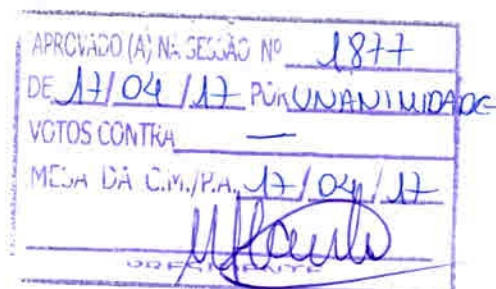 APROVADO (A) NA SESSÃO Nº 1877
DE 17/04/17 POR UNANIMIDADE
VOTOS CONTRA —
MESA DA C.M./P.A., 17/04/17
PRESIDENTE